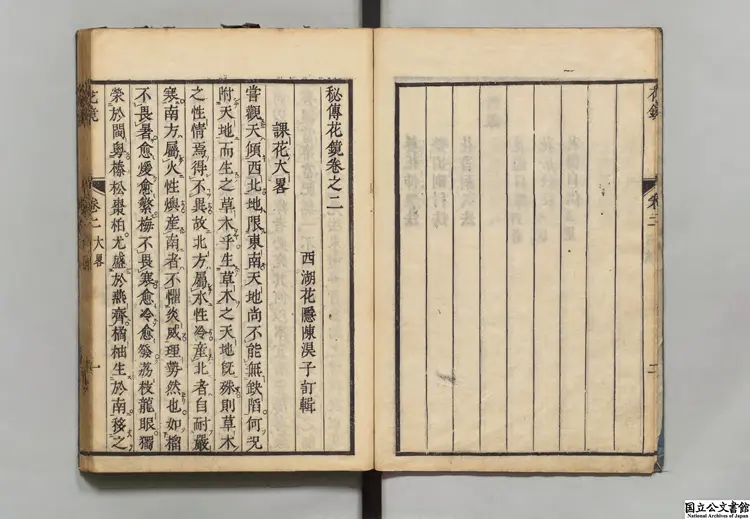 花鏡
卷二
二
秘傳花鏡卷之二
西湖花隱陳淏子訂輯
課花大畧
嘗觀天傾西北地限東南天地尚不能無缺陷何況
附天地而生之草木乎生草木之天地既殊則草木
之性情焉得不異故北方屬水性冷産北者自耐嚴
寒南方屬火性燠産南者不懼炎威理勢然也如榴
不畏暑愈煖愈繁梅不畏寒愈冷愈發荔枝龍眼獨
榮於閩粤榛松棗柏尤盛於燕齊橘柚生於南移之
花鏡
卷二
大畧
一
国立公文書館
National Archives of Japan